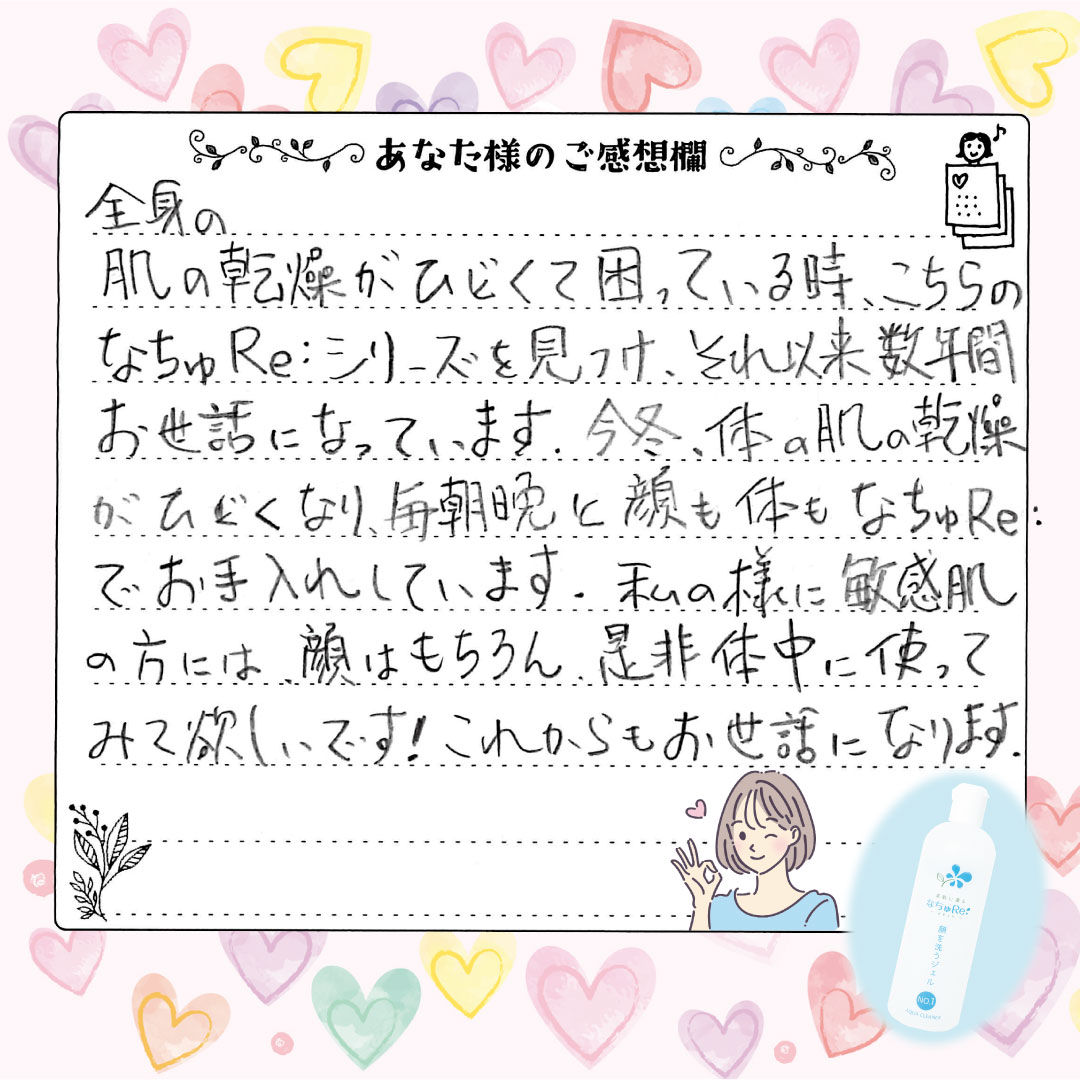 あなた様のご感想欄
全身の
肌の乾燥がひどくて困っている時、こちらの
なちゅRe:シリーズを見つけ、それ以来数年間
お世話になっています.今冬、体の肌の乾燥
がひどくなり、毎朝晩と顔も体もなちゅRe:
でお手入れしています.私の様に敏感肌
の方には、顔はもちろん、是非体中に使って
みて欲しいです!これからもお世話になります.
なちゅRe:
顔を洗うジェル
NO.1